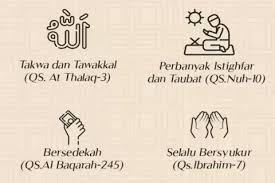 الله
Takwa dan Tawakkal
(QS. At Thalaq-3)
Perbanyak Istighfar
dan Taubat (QS.Nuh-10)
Bersedekah
(QS.Al Baqarah-245)
Selalu Bersyukur
(Qs.Ibrahim-7)